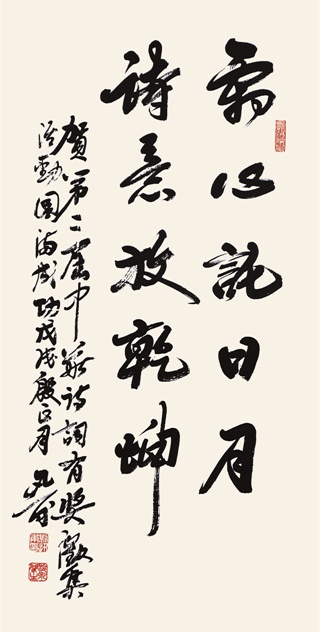 心託日月
詩意放乾坤
賀第二屆中華詩詞有奬徵集
活動圓滿成功戊戌殷正月